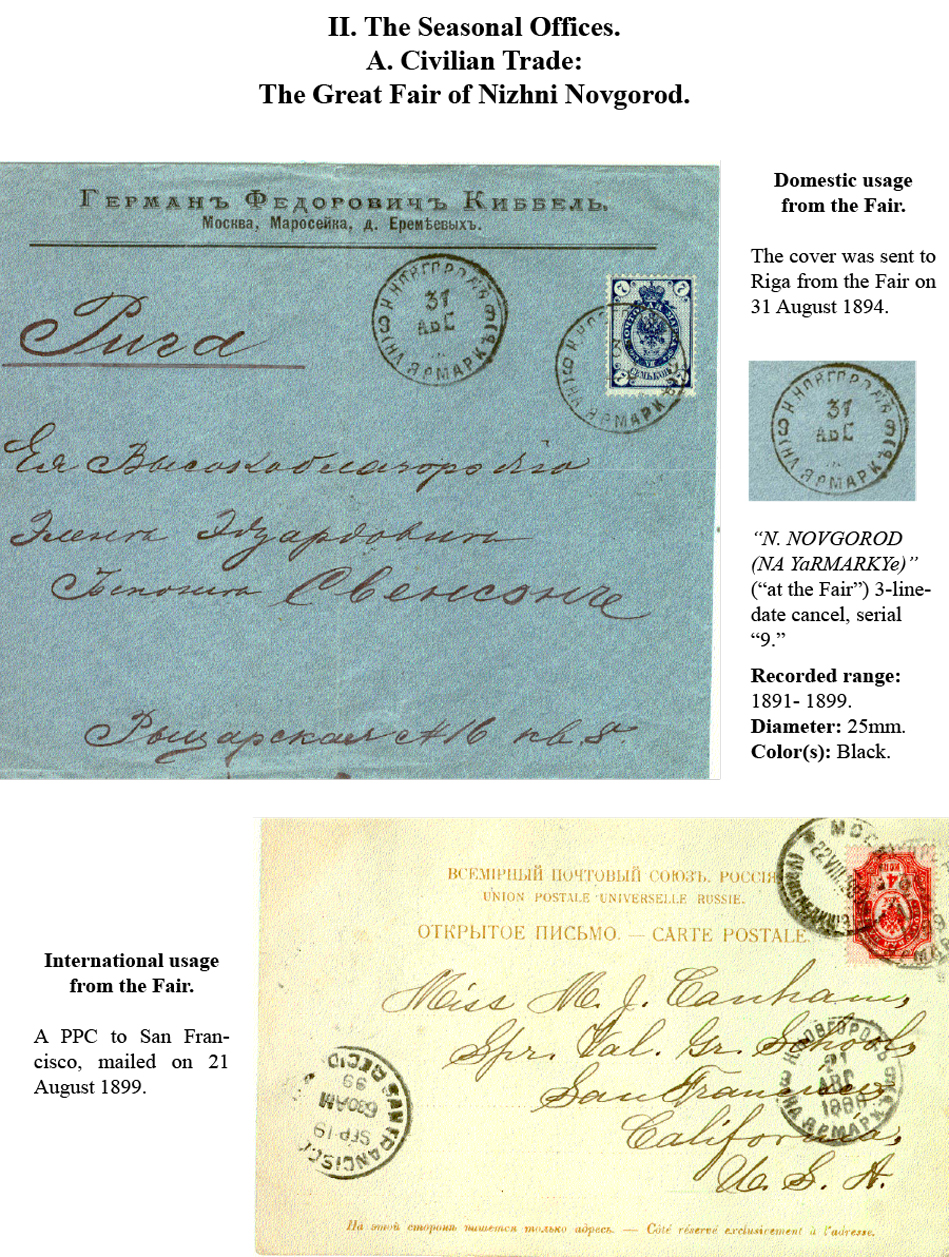 II. The Seasonal Offices.
A. Civilian Trade:
The Great Fair of Nizhni Novgorod.
Германъ Федоровичъ Киббель.
Москва, Маросейка, д. Еремѣевыхъ.
Рига
Н.НОВГОРОДЪ
31
АВГ
НА ЯРМАРКѢ
9
7
7
Ея Высокоблагородію
Свенсонъ
Рыцарская № 16 кв. 8.
Domestic usage
from the Fair.
The cover was sent to
Riga from the Fair on
31 August 1894.
Н.НОВГОРОДЪ
31
АВГ
НА ЯРМАРКѢ
9
“N. NOVGOROD
(NA YaRMARKYe)”
(“at the Fair”) 3-line-
date cancel, serial
“9.”
Recorded range:
1891- 1899.
Diameter: 25mm.
Color(s): Black.
International usage
from the Fair.
A PPC to San Fran-
cisco, mailed on 21
August 1899.
ВСЕМІРНЫЙ ПОЧТОВЫЙ СОЮЗЪ. РОССІЯ
UNION POSTALE UNIVERSELLE RUSSIE.
ОТКРЫТОЕ ПИСЬМО. — CARTE POSTALE.
22 VIII
4
КОП
Miss M. J. Canham,
Spr. Val. Gr. School,
San Francisco
California,
U. S. A.
НОВГОРОДЪ
21
АВГ
НА ЯРМАРКѢ
SAN FRANCISCO
SEP 19
630AM
99
REC'D
На этой сторонѣ пишется только адресъ. — Côté réservé exclusivement à l'adresse.